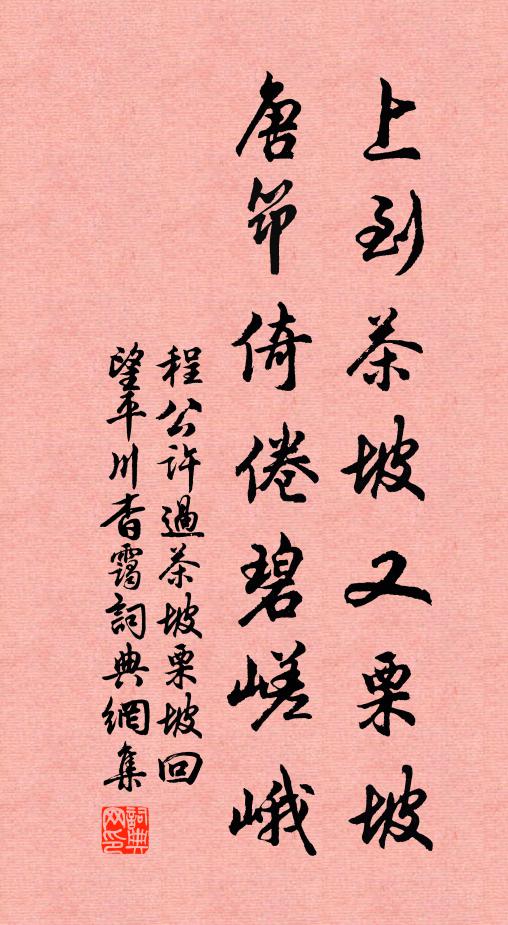 上到茶坡又栗坡
唐笻倚倦碧嵯峨
程公許過茶坡栗坡回
望平川杳靄詞典網集
詞典网印